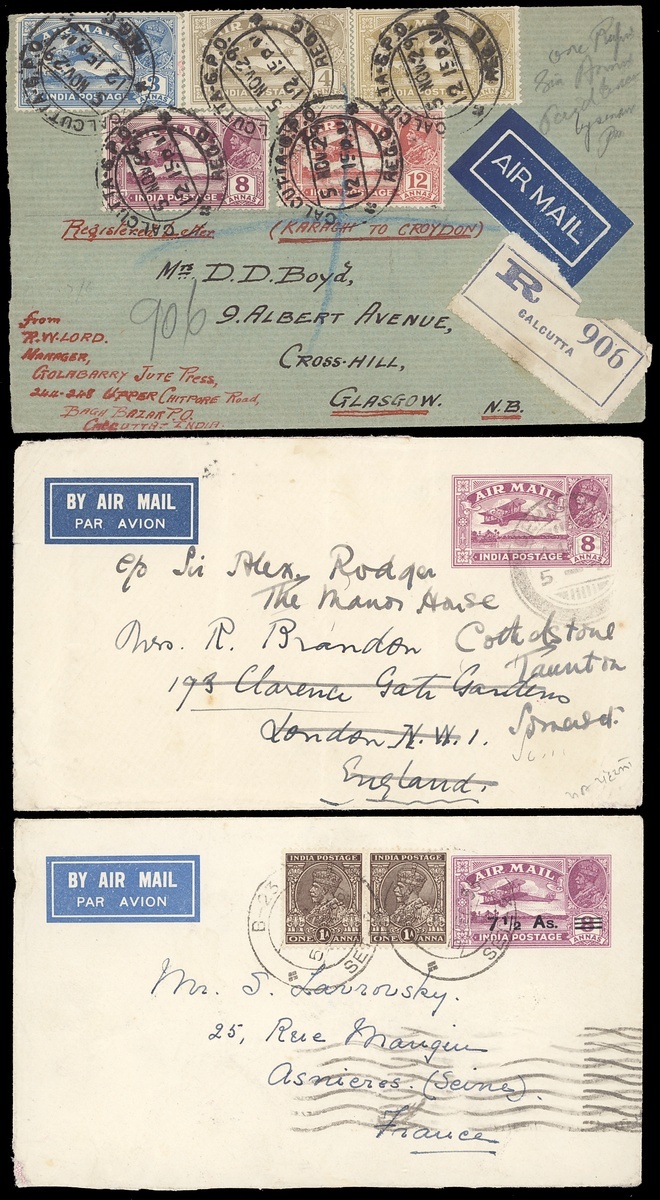 3
INDIA POSTAGE ANNAS
4
INDIA POSTAGE ANNAS
INDIA POSTAGE
CALCUTTA G.P.O. REG.
5 NOV 29
12 15 P.M.
8
INDIA POSTAGE ANNAS
12
INDIA POSTAGE ANNAS
AIR MAIL
Registered Letter (KARACHI TO CROYDON)
Mrs. D. D. Boyd,
906
9. ALBERT AVENUE,
CROSS-HILL,
GLASGOW. N.B.
R
CALCUTTA 906
from
R.W. LORD.
MANAGER,
GOLABARRY JUTE PRESS,
244-248 UPPER CHITPORE Road,
BAGH BAZAR P.O.
CALCUTTA - INDIA.
BY AIR MAIL
PAR AVION
AIR MAIL
8
INDIA POSTAGE ANNAS
5
c/o Sir Alex. Rodger
The Manor House
Mrs. R. Brandon Cothelstone
Taunton
193 Clarence Gate Gardens
Somerset
London N.W.1.
England.
BY AIR MAIL
PAR AVION
INDIA POSTAGE
1A
ONE ANNA
INDIA POSTAGE
1A
ONE ANNA
AIR MAIL
7 1/2 As. 8
INDIA POSTAGE ANNAS
B-23
5
Mr. S. Lavrovsky.
25, Rue Mangin
Asnieres. (Seine).
France